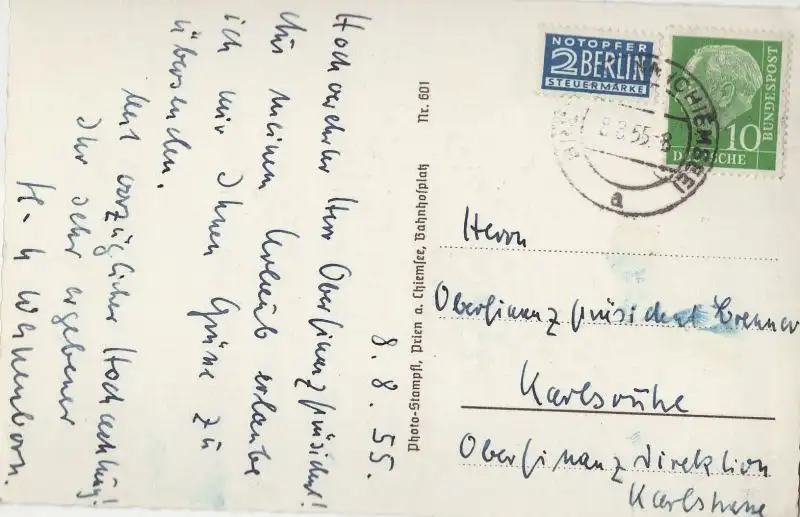 8. 8. 55.
Hochverehrter Herr Oberfinanzpräsident!
Aus meinem Urlaub erlaube
ich mir Ihnen Grüße zu
übersenden.
Mit vorzüglicher Hochachtung!
Ihr sehr ergebener
H. u
Photo-Stampfl, Prien a. Chiemsee, Bahnhofplatz Nr. 601
NOTOPFER
2 BERLIN
STEUERMARKE
DEUTSCHE
BUNDESPOST
10
(CHIEMSEE)
8.8.55-8
a
Herrn
Oberfinanzpräsident
Karlsruhe
Oberfinanzdirektion
Karlstrasse